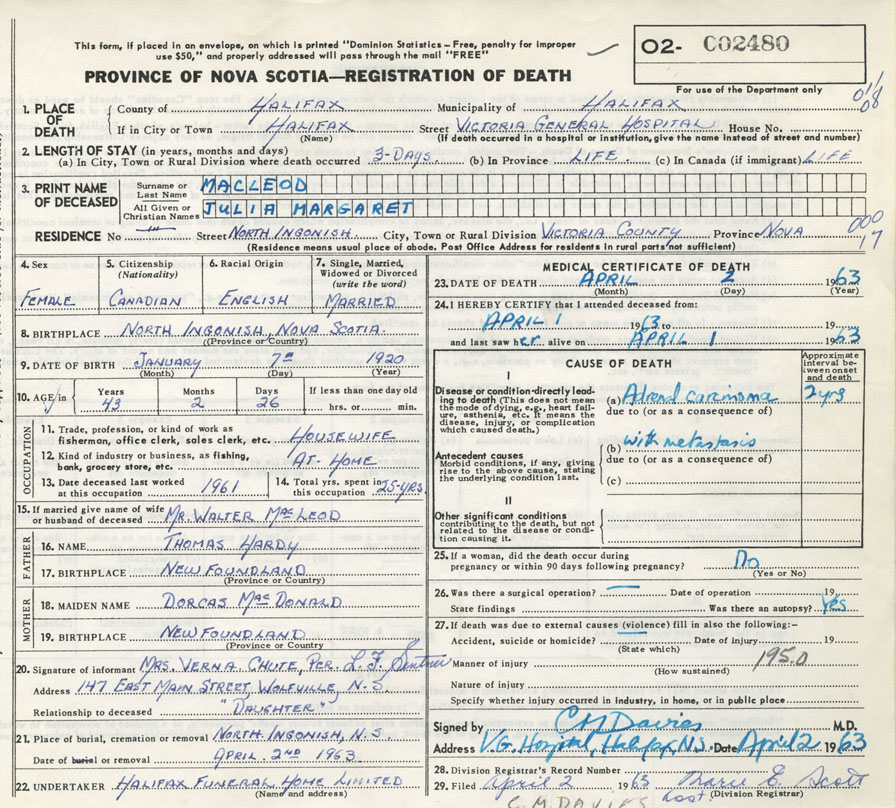 This form, if placed in an envelope, on which is printed "Dominion Statistics – Free, penalty for improper
use $50," and properly addressed will pass through the mail "FREE"
O2- C02480
PROVINCE OF NOVA SCOTIA—REGISTRATION OF DEATH
For use of the Department only
01/08
1. PLACE OF DEATH
County of HALIFAX Municipality of HALIFAX
If in City or Town HALIFAX Street VICTORIA GENERAL HOSPITAL House No.
(Name) (If death occurred in a hospital or institution, give the name instead of street and number)
2. LENGTH OF STAY (in years, months and days)
(a) In City, Town or Rural Division where death occurred 3-DAYS (b) In Province LIFE (c) In Canada (if immigrant) LIFE
3. PRINT NAME OF DECEASED
Surname or Last Name MACLEOD
All Given or Christian Names JULIA MARGARET
RESIDENCE No — Street NORTH INGONISH City, Town or Rural Division VICTORIA COUNTY Province NOVA
000
17
(Residence means usual place of abode. Post Office Address for residents in rural parts not sufficient)
4. Sex
FEMALE
5. Citizenship
(Nationality)
CANADIAN
6. Racial Origin
ENGLISH
7. Single, Married,
Widowed or Divorced
(write the word)
MARRIED
8. BIRTHPLACE NORTH INGONISH, NOVA SCOTIA.
(Province or Country)
9. DATE OF BIRTH JANUARY 7TH 1920
(Month) (Day) (Year)
10. AGE in
Years Months Days If less than one day old
43 2 26 hrs. or min.
OCCUPATION
11. Trade, profession, or kind of work as
fisherman, office clerk, sales clerk, etc. HOUSEWIFE
12. Kind of industry or business, as fishing,
bank, grocery store, etc. AT-HOME
13. Date deceased last worked
at this occupation 1961
14. Total yrs. spent in
this occupation 25-YRS.
15. If married give name of wife
or husband of deceased MR. WALTER MACLEOD
FATHER
16. NAME THOMAS HARDY
17. BIRTHPLACE NEWFOUNDLAND
(Province or Country)
MOTHER
18. MAIDEN NAME DORCAS MACDONALD
19. BIRTHPLACE NEWFOUNDLAND
(Province or Country
20. Signature of informant MRS. VERNA CHUTE, PER. L. F.
Address 147 EAST MAIN STREET, WOLFVILLE, N.S.
Relationship to deceased "DAUGHTER"
21. Place of burial, cremation or removal NORTH INGONISH, N.S.
Date of burial or removal APRIL. 2ND 1963
22. UNDERTAKER HALIFAX FUNERAL HOME LIMITED
(Name and address)
MEDICAL CERTIFICATE OF DEATH
23. DATE OF DEATH APRIL 2 1963
(Month) (Day) (Year)
24. I HEREBY CERTIFY that I attended deceased from:
APRIL 1 1963 to
and last saw her alive on APRIL 1 1963
CAUSE OF DEATH
Approximate
interval be-
tween onset
and death
I
Disease or condition directly lead-
ing to death (This does not mean
the mode of dying, e.g., heart fail-
ure, asthenia, etc. It means the
disease, injury, or complication
which caused death.)
(a) Adrenal carcinoma 2 yrs
due to (or as a consequence of)
(b) with metastasis
Antecedent causes
Morbid conditions, if any, giving
rise to the above cause, stating
the underlying condition last.
due to (or as a consequence of)
(c)
II
Other significant conditions
contributing to the death, but not
related to the disease or condi-
tion causing it.
25. If a woman, did the death occur during
pregnancy or within 90 days following pregnancy? No
(Yes or No)
26. Was there a surgical operation? — Date of operation 19
State findings Was there an autopsy? Yes
27. If death was due to external causes (violence) fill in also the following:–
Accident, suicide or homicide? — Date of injury 19
(State which)
Manner of injury 195.0
(How sustained)
Nature of injury
Specify whether injury occurred in industry, in home, or in public place
Signed by C M Davies M.D.
Address V.G. Hospital, Halifax, N.S. Date April 2 1963
28. Division Registrar's Record Number
29. Filed April 2 1963 Marie E. Scott
(Division Registrar)
C. M. DAVIES